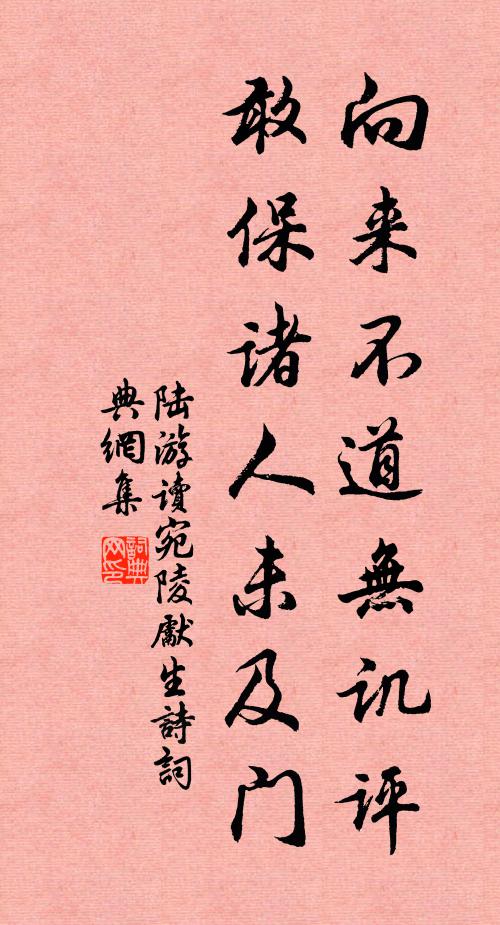 向来不道無讥评
敢保诸人未及门
陆游讀宛陵獻生詩詞
典網集
詞典
网印